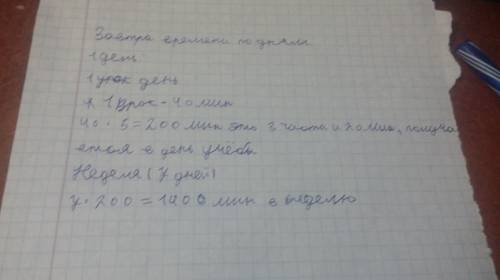 Завтра времени по дням
1 день
1 урок день
1 урок - 40 мин
40 · 5 = 200 мин это 3 часа и 20 мин, получа
ется в день учёбы
Неделя (7 дней)
7 · 200 = 1400 мин в неделю